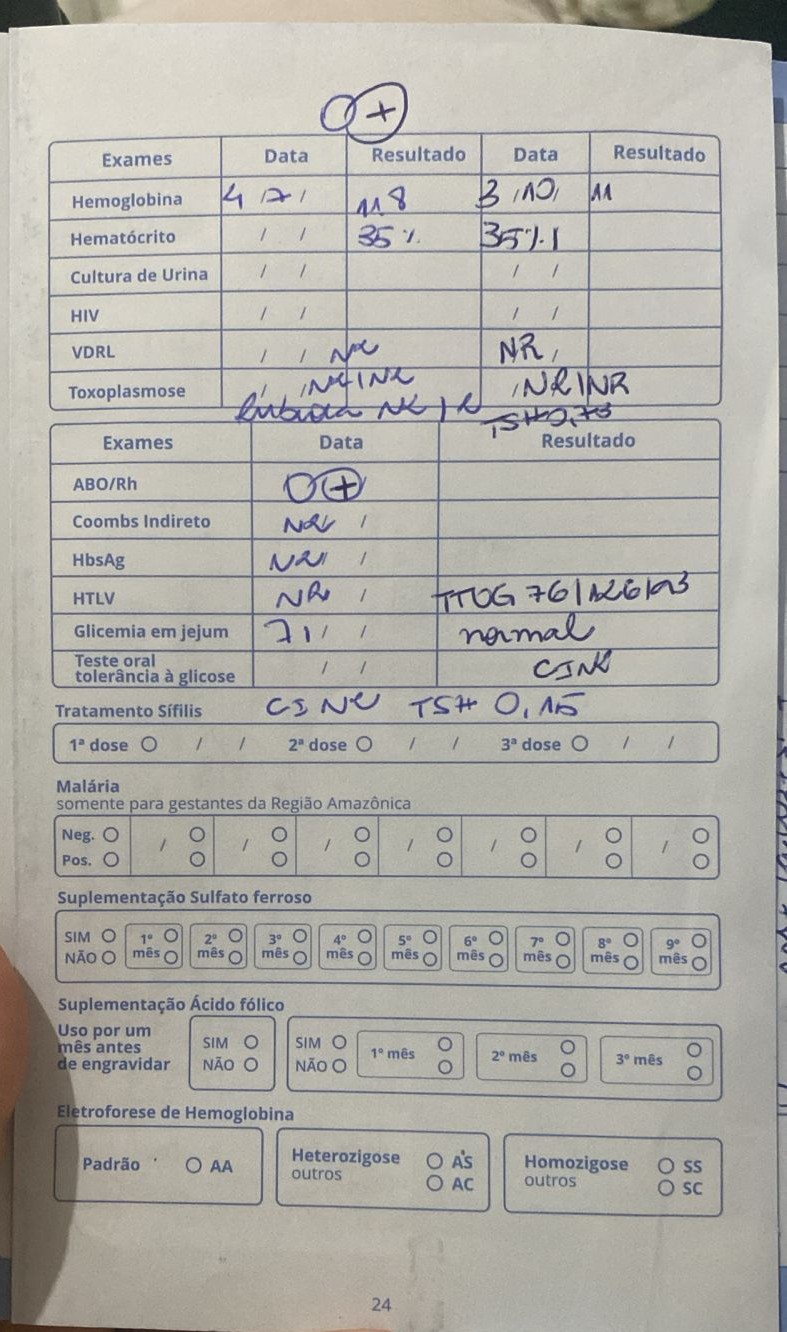 O +
Exames Data Resultado Data Resultado
Hemoglobina 4 / 7 / 11 8 3 / 10 / 11
Hematócrito / / 35 % 35 % /
Cultura de Urina / / / /
HIV / / / /
VDRL / / NR NR /
Toxoplasmose / / NR / NR / NR | NR
Rubéola NR | R TSH 0,73
Exames Data Resultado
ABO/Rh O +
Coombs Indireto NR / /
HbsAg NR / /
HTLV NR / TTOG 76 / 126 / 103
Glicemia em jejum 71 / / normal
Teste oral
tolerância à glicose / /
Tratamento Sífilis TSH 0,15
1ª dose / / 2ª dose / / 3ª dose / /
Malária
somente para gestantes da Região Amazônica
Neg. / / / / / / /
Pos.
Suplementação Sulfato ferroso
SIM 1º 2º 3º 4º 5º 6º 7º 8º 9º
NÃO mês mês mês mês mês mês mês mês mês
Suplementação Ácido fólico
Uso por um
mês antes
de engravidar
SIM
NÃO
SIM
NÃO
1º mês 2º mês 3º mês
Eletroforese de Hemoglobina
Padrão AA
Heterozigose AS
outros AC
Homozigose SS
outros SC
24